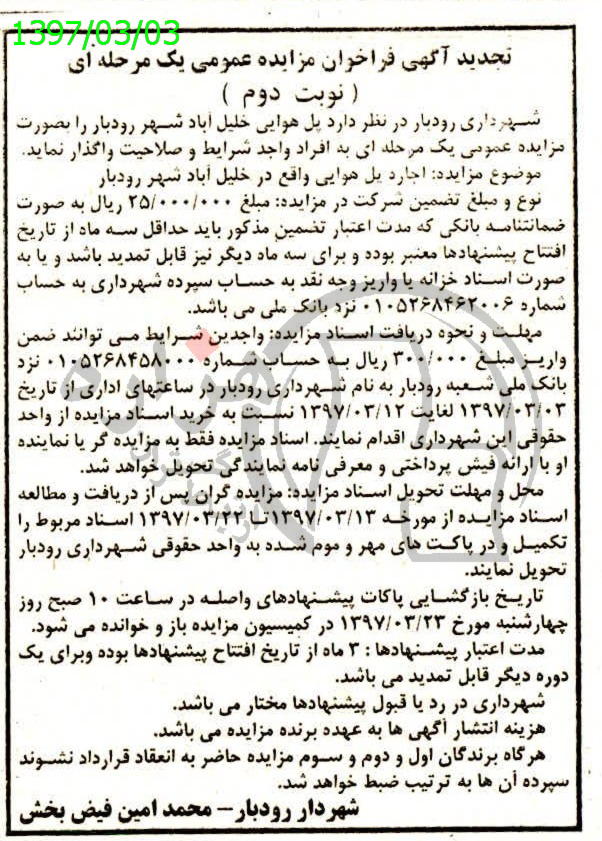 1397/03/03
تجدید آگهی فراخوان مزایده عمومی یک مرحله ای
( نوبت دوم )
شهرداری رودبار در نظر دارد پل هوایی خلیل آباد شهر رودبار را بصورت
مزایده عمومی یک مرحله ای به افراد واجد شرایط و صلاحیت واگذار نماید.
موضوع مزایده: اجاره پل هوایی واقع در خلیل آباد شهر رودبار
نوع و مبلغ تضمین شرکت در مزایده: مبلغ ۲۵/۰۰۰/۰۰۰ ریال به صورت
ضمانتنامه بانکی که مدت اعتبار تضمین مذکور باید حداقل سه ماه از تاریخ
افتتاح پیشنهادها معتبر بوده و برای سه ماه دیگر نیز قابل تمدید باشد و یا به
صورت اسناد خزانه یا واریز وجه نقد به حساب سپرده شهرداری به حساب
شماره ۰۱۰۵۲۶۸۴۶۲۰۰۶ نزد بانک ملی می باشد.
مهلت و نحوه دریافت اسناد مزایده: واجدین شرایط می توانند ضمن
واریز مبلغ ۳۰۰/۰۰۰ ریال به حساب شماره ۰۱۰۵۲۶۸۴۵۸۰۰۰ نزد
بانک ملی شعبه رودبار به نام شهرداری رودبار در ساعتهای اداری از تاریخ
۱۳۹۷/۰۳/۰۳ لغایت ۱۳۹۷/۰۳/۱۲ نسبت به خرید اسناد مزایده از واحد
حقوقی این شهرداری اقدام نمایند. اسناد مزایده فقط به مزایده گر یا نماینده
او با ارائه فیش پرداختی و معرفی نامه نمایندگی تحویل خواهد شد.
محل و مهلت تحویل اسناد مزایده: مزایده گران پس از دریافت و مطالعه
اسناد مزایده از مورخه ۱۳۹۷/۰۳/۱۳ تا ۱۳۹۷/۰۳/۲۲ اسناد مربوط را
تکمیل و در پاکت های مهر و موم شده به واحد حقوقی شهرداری رودبار
تحویل نمایند.
تاریخ بازگشایی پاکات پیشنهادهای واصله در ساعت ۱۰ صبح روز
چهارشنبه مورخ ۱۳۹۷/۰۳/۲۳ در کمیسیون مزایده باز و خوانده می شود.
مدت اعتبار پیشنهادها : ۳ ماه از تاریخ افتتاح پیشنهادها بوده وبرای یک
دوره دیگر قابل تمدید می باشد.
شهرداری در رد یا قبول پیشنهادها مختار می باشد.
هزینه انتشار آگهی ها به عهده برنده مزایده می باشد.
هرگاه برندگان اول و دوم و سوم مزایده حاضر به انعقاد قرارداد نشوند
سپرده آن ها به ترتیب ضبط خواهد شد.
شهردار رودبار– محمد امین فیض بخش